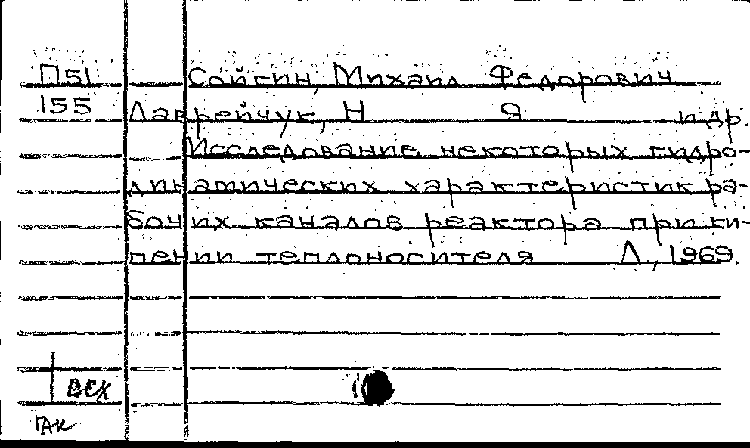 П51 Сойгин, Михаил Федорович
155 Лаврейчук, Н Я и др.
Исследование некоторых гидро-
динамических характеристик ра-
бочих каналов реактора при ки-
пении теплоносителя Л., 1969.
ВСХ
ГАК